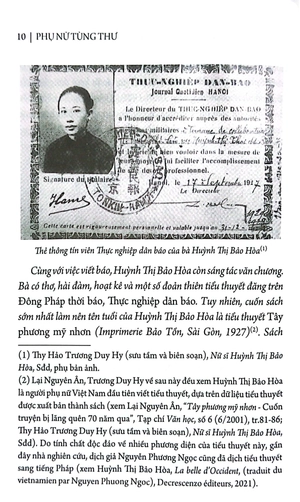 10 | PHỤ NỮ TÙNG THƯ
THỰC-NGHIỆP DÂN-BÁO
Journal Quotidien HANOI
Le Directeur du THỰC-NGHIỆP DAN-BAO
a l'honneur d'accréditer auprès des autorités
militaires
bien vouloir dans la mesure de
lui faciliter l'accomplissement
professionnel.
Signature du titulaire
Le Directeur
TONKIN-HANOI
Cette carte est rigoureusement personnelle et valable jusqu'au 31-12-
Thẻ thông tín viên Thực nghiệp dân báo của bà Huỳnh Thị Bảo Hòa(1)
Cùng với việc viết báo, Huỳnh Thị Bảo Hòa còn sáng tác văn chương.
Bà có thơ, hài đàm, hoạt kê và một số đoản thiên tiểu thuyết đăng trên
Đông Pháp thời báo, Thực nghiệp dân báo. Tuy nhiên, cuốn sách
sớm nhất làm nên tên tuổi của Huỳnh Thị Bảo Hòa là tiểu thuyết Tây
phương mỹ nhơn (Imprimerie Bảo Tồn, Sài Gòn, 1927)(2). Sách
(1) Thy Hảo Trương Duy Hy (sưu tầm và biên soạn), Nữ sĩ Huỳnh Thị Bảo
Hòa, Sđd, phụ bản ảnh.
(2) Lại Nguyên Ân, Trương Duy Hy về sau này đều xem Huỳnh Thị Bảo Hòa
là người phụ nữ Việt Nam đầu tiên viết tiểu thuyết, dựa trên dữ liệu tiểu thuyết
được xuất bản thành sách (xem Lại Nguyên Ân, “Tây phương mỹ nhơn - Cuốn
truyện bị lãng quên 70 năm qua”, Tạp chí Văn học, số 6 (6/2001), tr.81-86;
Thy Hảo Trương Duy Hy (sưu tầm và biên soạn), Nữ sĩ Huỳnh Thị Bảo Hòa,
Sđd). Do tính chất độc đáo về nhiều phương diện của tiểu thuyết này, gần
đây nhà nghiên cứu, dịch giả Nguyên Phương Ngọc cũng đã dịch tiểu thuyết
sang tiếng Pháp (xem Huỳnh Thị Bảo Hòa, La belle d'Occident, (traduit du
vietnamien par Nguyen Phuong Ngoc), Decrescenzo éditeurs, 2021).